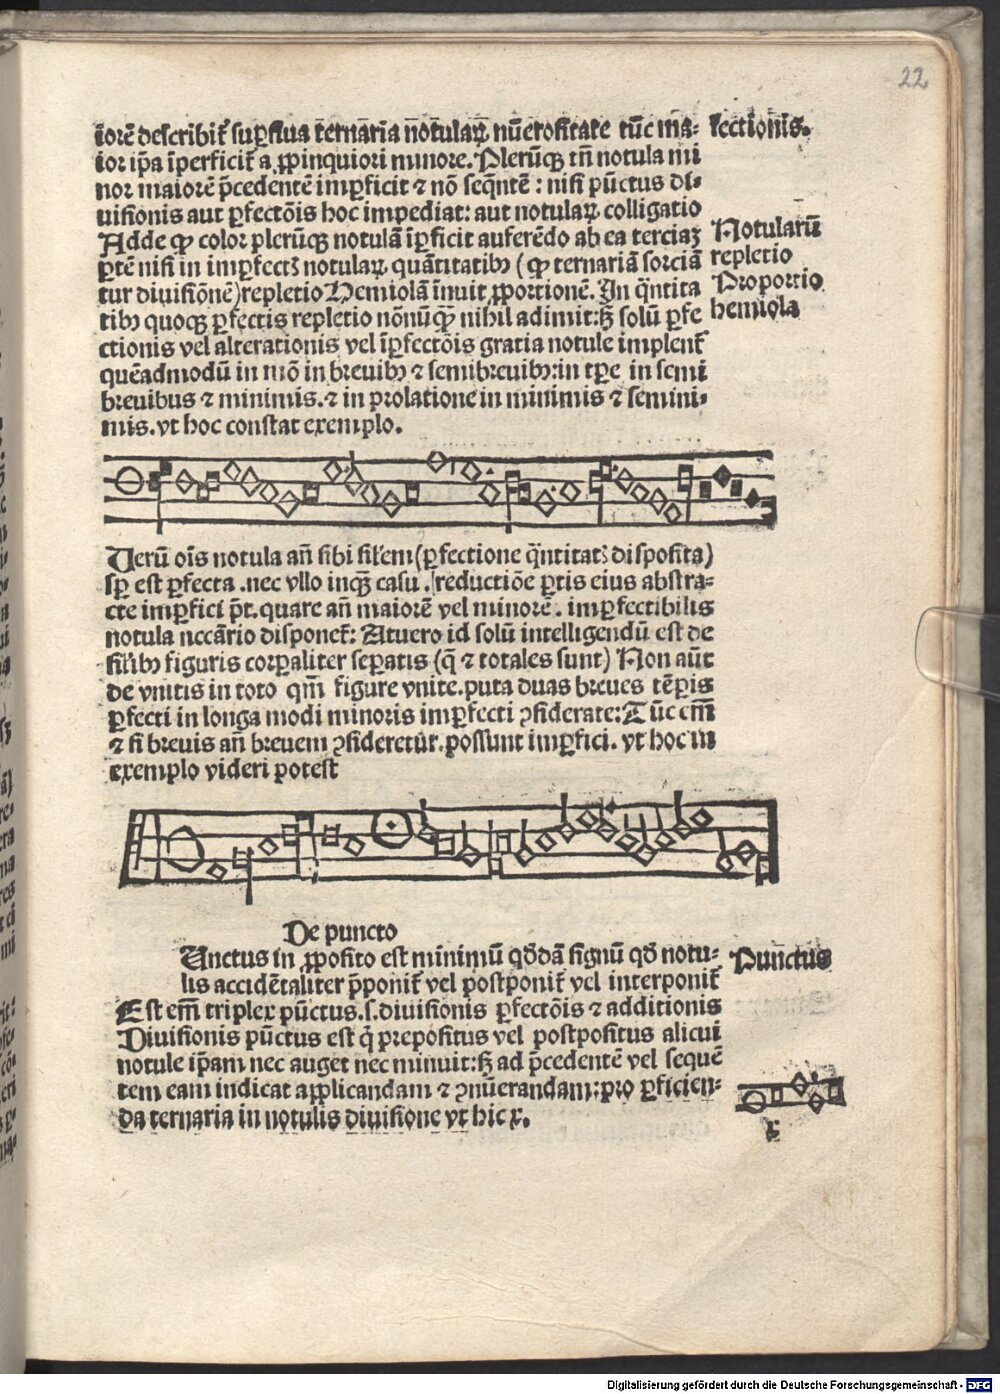 22
iorē describit᷑ sup̱flua ternaria notulaꝝ nūerositate tūc ma⸗
fectionis.
ior ip̄a īperficit᷑ a ꝓpinquiori minore. Plerūqꝫ tñ notula mi
nor maiorē p̄cedentē imꝑficit ⁊ nō seq̄ntē : nisi pūctus di⸗
uisionis aut ꝑfectōis hoc impediat: aut notulaꝝ colligatio
Adde ꝙ color plerūqꝫ notulā īꝑficit auferēdo ab ea terciaꝫ
Notularū
ꝑtē nisi in imꝑfectꝭ notulaꝝ quātitatibꝫ (ꝙ ternariā sorciā
repletio
tur diuisiōnē) repletio Hemiolā īnuit ꝓportionē. In q̄ntita
Proportio
tibꝫ quoqꝫ ꝑfectis repletio nōnūqꝫ̄ nihil adimit: sꝫ solū ꝑfe
hemiola
ctionis vel alterationis vel īꝑfectōis gratia notule implent᷑
quēadmodū in mō in breuibꝫ ⁊ semibreuibꝫ: in tꝑe in semi
breuibus ⁊ minimis. ⁊ in prolatione in minimis ⁊ semini⸗
mis. vt hoc constat exemplo.
Verū oīs notula añ sibi sil̄em (ꝑfectione q̄ntitatꝭ disposita)
sꝑ est ꝑfecta . nec vllo inqꝫ̄ casu . reductiōe ꝑtis eius abstra⸗
cte imꝑfici p̄t. quare añ maiorē vel minorē . imꝑfectibilis
notula nccārio disponet᷑: Atuero id solū intelligendū est de
sil̄ibꝫ figuris corꝑaliter seꝑatis (q̄ ⁊ totales sunt) Non aūt
de vnitis in toto qm̄ figure vnite. puta duas breues tēꝑis
ꝑfecti in longa modi minoris imꝑfecti ꝯsiderate: Tūc em̄
⁊ si breuis añ breuem ꝯsideretur. possunt imꝑfici. vt hoc in
exemplo videri potest
De puncto
Unctus in ꝓposito est minimū qd̄dā signū qd̄ notu⸗
Punctus
lis accidētaliter p̄ponit᷑ vel postponit᷑ vel interponit᷑
Est em̄ triplex pūctus .s. diuisionis ꝑfectōis ⁊ additionis
Diuisionis pūctus est q̇ prepositus vel postpositus alicui
notule ip̄am nec auget nec minuit: sꝫ ad p̄cedentē vel sequē
tem eam indicat applicandam ⁊ ꝯnūerandam: pro ꝑficien⸗
da ternaria in notulis diuisione vt hic x.
x
Digitalisierung gefördert durch die Deutsche Forschungsgemeinschaft - DFG